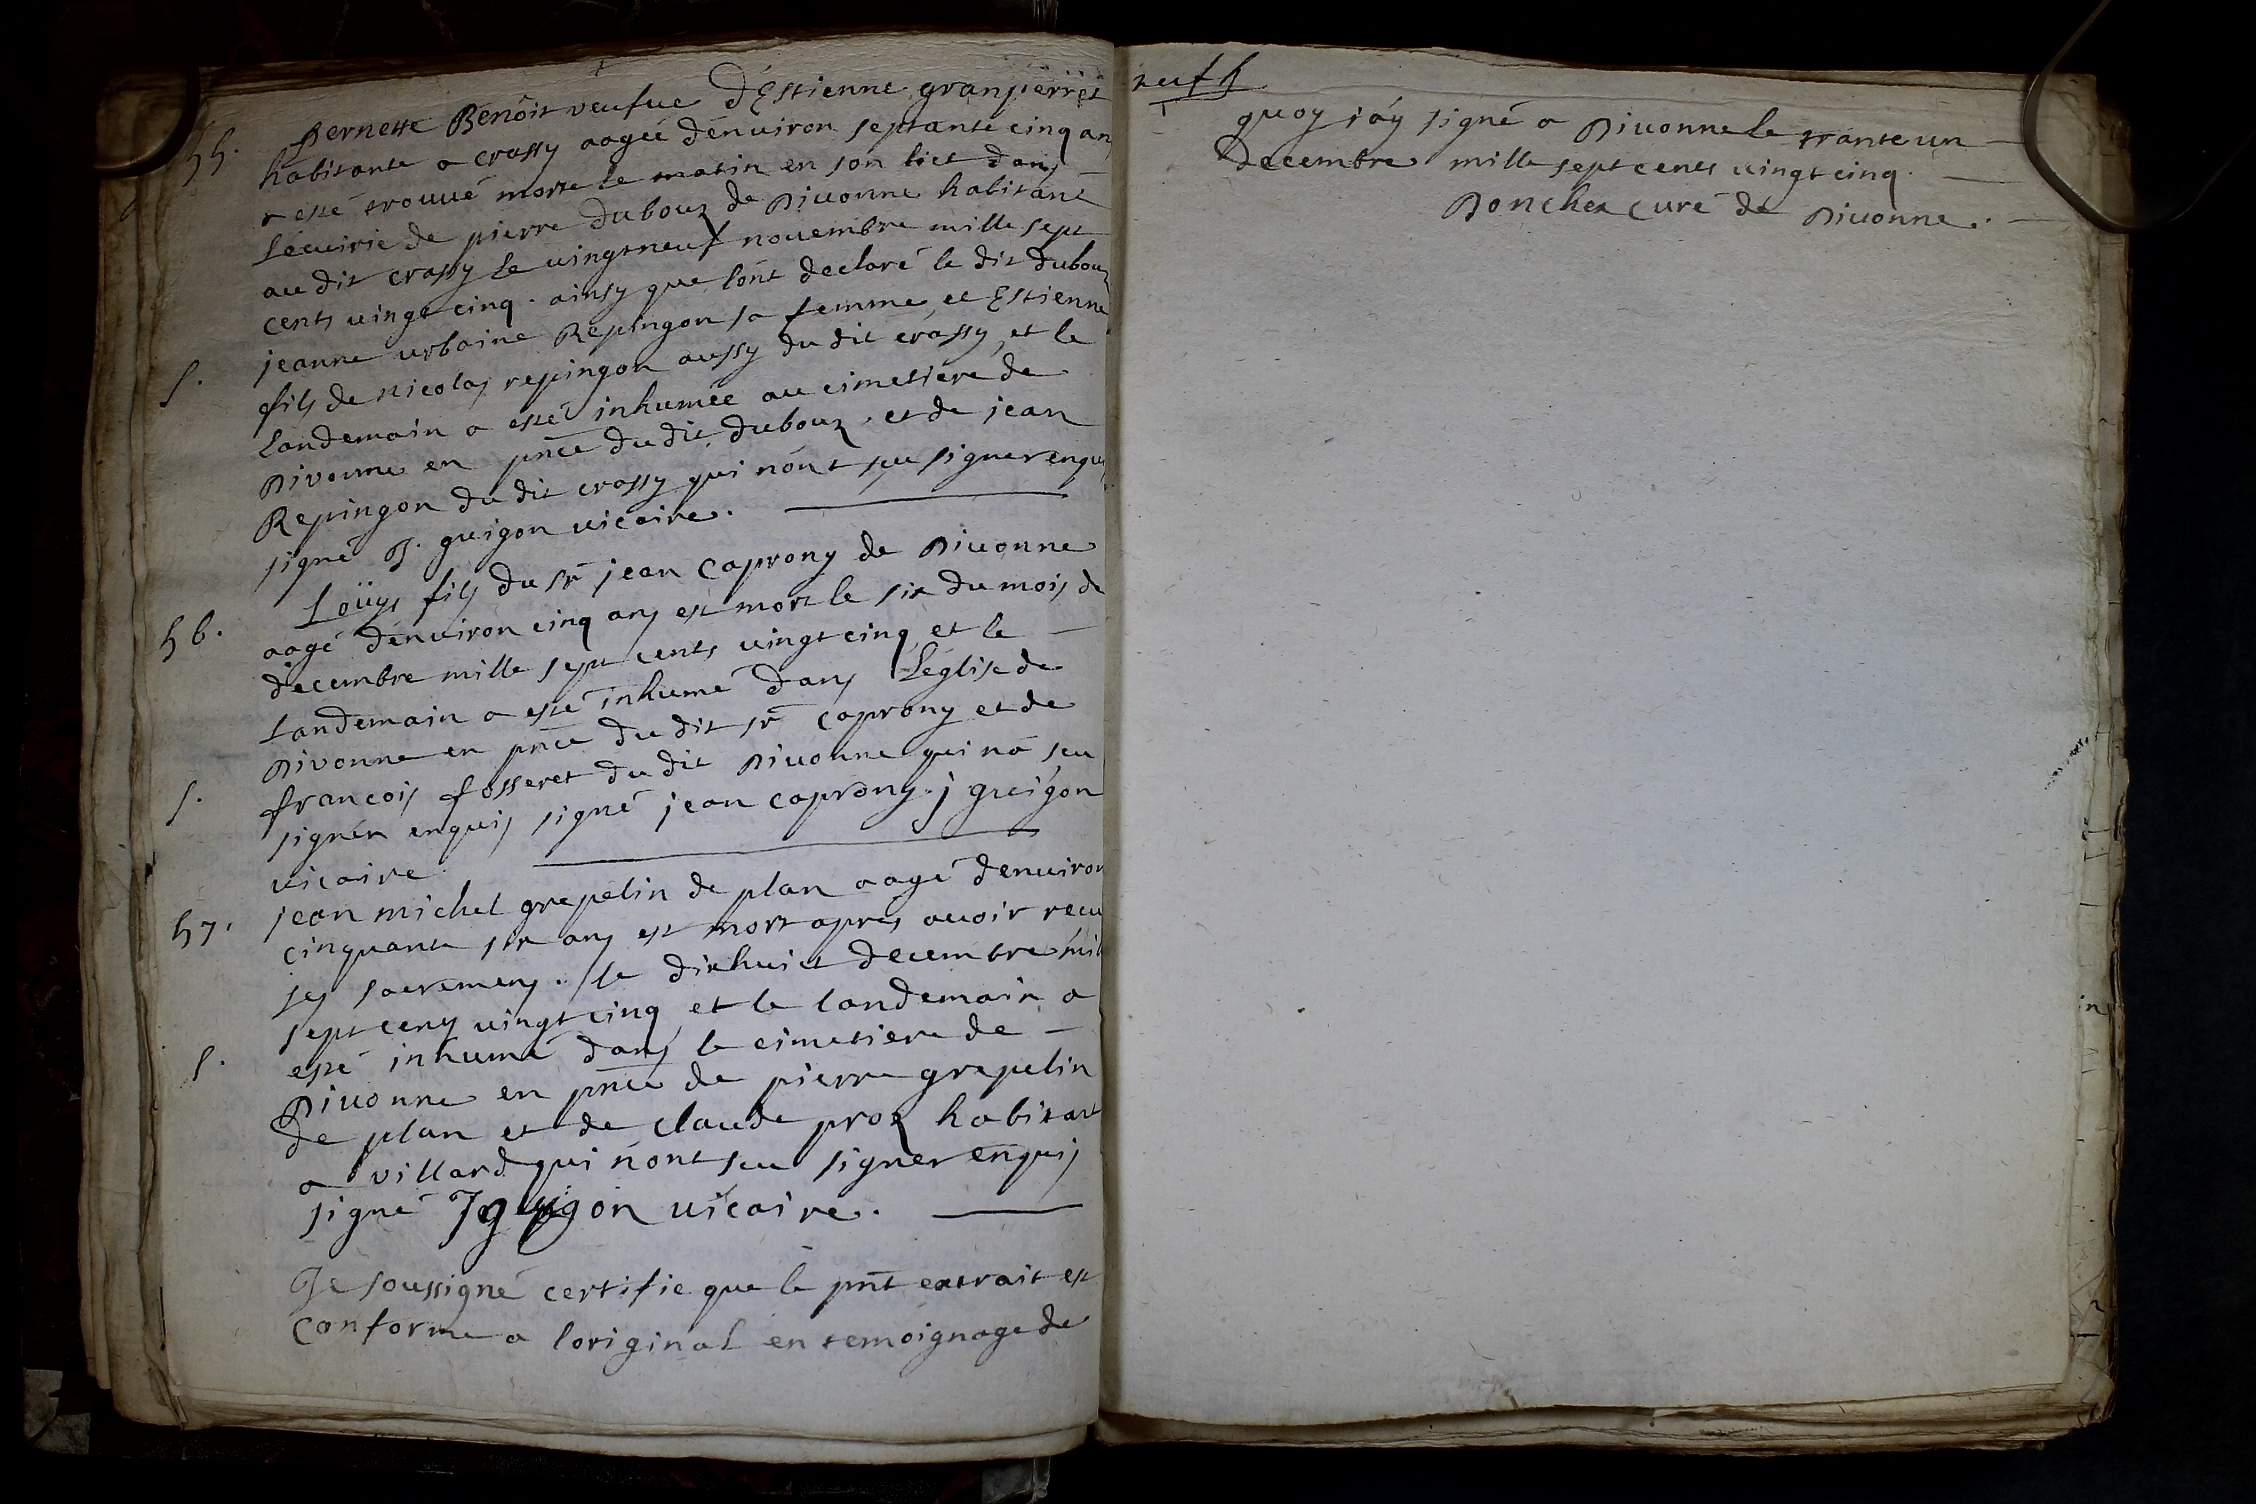 55. Bernette Benoit veufue d'Estienne granpierret
habitante a crassy aagée d'enuiron septante cinq ans
a esté trouué morte le matin en son lict dans
l'écuirie de pierre dubouz de Diuonne habitant
au dit crassy le vingt neuf nouembre mille sept
cents vingt cinq. ainsy que l'ont declaré le dit dubouz
jeanne urbaine Repingon sa femme et Estienne
S. fils de nicolas repingon aussy du dit crassy, et le
landemain a esté inhumée au cimetiére de
Divonne en pnce du dit dubouz. et de jean
Repingon du dit crassy qui n'ont seu signer enquis
signé J. guigon vicaire.
56. Loüys fils du sr jean Caprony de Diuonne
aagé d'enuiron cinq ans est mort le six du mois de
decembre mille sept cents vingt cinq et le
landemain a esté inhumé dans L'église de
Divonne en pnce du dit sr Caprony et de
S. francois fosseret du dit Diuonne qui n'a seu
signér enquis signé jean caprony. j guigon
vicaire.
57. jean michel grepelin de plan aagé d'enuiron
cinquante six ans est mort apres auoir recu
ses sacremens. le dixhuict decembre mil
sept cens vingt cinq et le landemain a
S. esté inhumé dans le cimetiere de
Diuonne en pnce de pierre grepelin
de plan et de claude proz habitant
a villard qui n'ont seu signer enquis
signé J guigon vicaire.
Je soussigné certifie que le pnt extrait est
conforme a l'original en temoignage de
neuf
quoy j'ay signé a Diuonne le trante un
decembre mille sept cents vingt cinq.
Boncher curé de Diuonne.